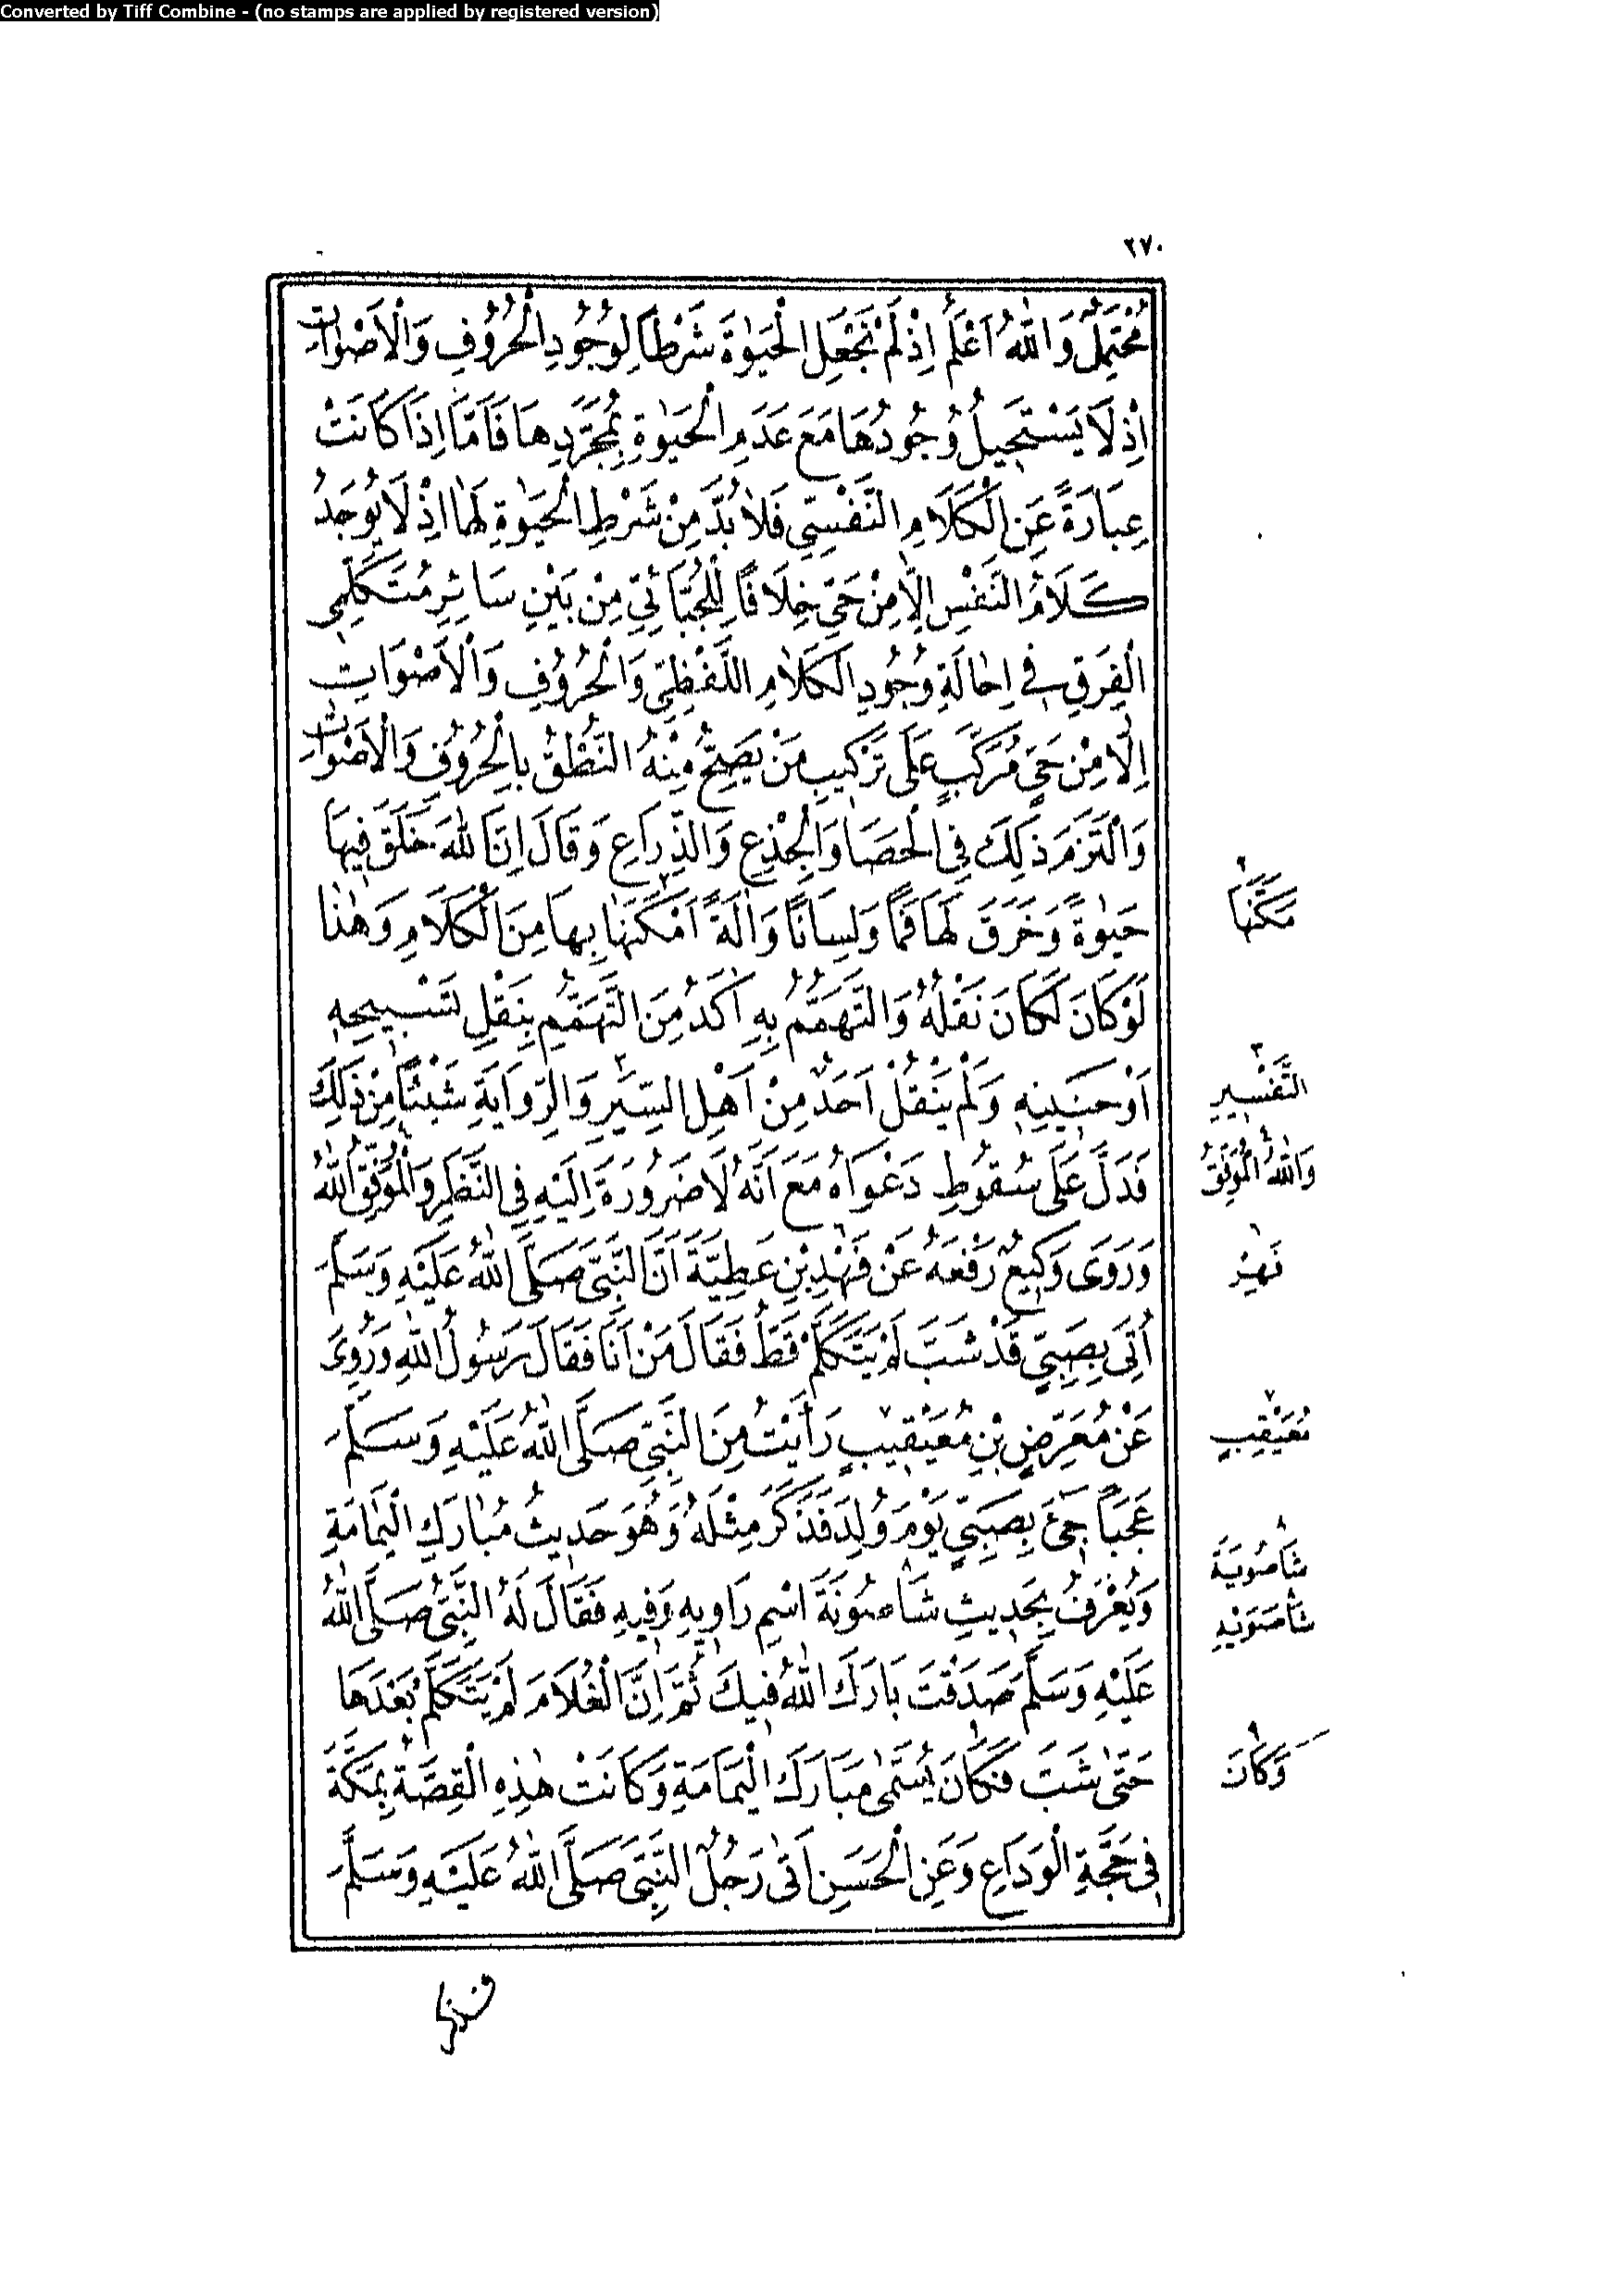 Converted by Tiff Combine - (no stamps are applied by registered version)
٢٧٠
مُحْتَمِلٌ وَاللّٰهُ اَعْلَمُ اِذْ لَمْ نَجْعَلِ الْحَيٰوةَ شَرْطًا لِوُجُودِ الْحُرُوفِ وَالْاَصْوَاتِ
اِذْ لَا يَسْتَحِيلُ وُجُودُهَا مَعَ عَدَمِ الْحَيٰوةِ بِمُجَرَّدِهَا فَاَمَّا اِذَا كَانَتْ
عِبَارَةً عَنِ الْكَلَامِ النَّفْسِيِّ فَلَا بُدَّ مِنْ شَرْطِ الْحَيٰوةِ لَهَا اِذْ لَا يُوجَدُ
كَلَامُ النَّفْسِ اِلَّا مِنْ حَيٍّ خِلَافًا لِلْجُبَّائِيِّ مِنْ بَيْنِ سَائِرِ مُتَكَلِّمِي
الْفِرَقِ فِي اِحَالَةِ وُجُودِ الْكَلَامِ اللَّفْظِيِّ وَالْحُرُوفِ وَالْاَصْوَاتِ
اِلَّا مِنْ حَيٍّ مُرَكَّبٍ عَلَى تَرْكِيبِ مَنْ يَصِحُّ مِنْهُ النُّطْقُ بِالْحُرُوفِ وَالْاَصْوَاتِ
وَالْتَزَمَ ذٰلِكَ فِي الْحَصَا وَالْجِذْعِ وَالذِّرَاعِ وَقَالَ اِنَّ اللّٰهَ خَلَقَ فِيهَا
حَيٰوةً وَخَرَقَ لَهَا فَمًا وَلِسَانًا وَاٰلَةً اَمْكَنَهَا بِهَا مِنَ الْكَلَامِ وَهٰذَا
لَوْ كَانَ لَكَانَ نَقْلُهُ وَالتَّهَمُّمُ بِهِ اٰكَدُ مِنَ التَّهَمُّمِ بِنَقْلِ تَسْبِيحِهِ
اَوْ حَنِينِهِ وَلَمْ يَنْقُلْ اَحَدٌ مِنْ اَهْلِ السِّيَرِ وَالرِّوَايَةِ شَيْئًا مِنْ ذٰلِكَ
فَدَلَّ عَلَى سُقُوطِ دَعْوَاهُ مَعَ اَنَّهُ لَا ضَرُورَةَ اِلَيْهِ فِي النَّظَرِ وَالْمُوَفِّقُ اللّٰهُ
وَرَوَى وَكِيعٌ رَفَعَهُ عَنْ فَهْدِ بْنِ عَطِيَّةَ اَنَّ النَّبِيَّ صَلَّى اللّٰهُ عَلَيْهِ وَسَلَّمَ
اُتِيَ بِصَبِيٍّ قَدْ شَبَّ لَمْ يَتَكَلَّمْ قَطُّ فَقَالَ مَنْ اَنَا فَقَالَ رَسُولُ اللّٰهِ وَرُوِيَ
عَنْ مُعَرِّضِ بْنِ مُعَيْقِيبٍ رَأَيْتُ مِنَ النَّبِيِّ صَلَّى اللّٰهُ عَلَيْهِ وَسَلَّمَ
عَجَبًا جِيءَ بِصَبِيٍّ يَوْمَ وُلِدَ فَذَكَرَ مِثْلَهُ وَهُوَ حَدِيثُ مُبَارَكِ الْيَمَامَةِ
وَيُعْرَفُ بِحَدِيثِ شَاصُونَةَ اسْمِ رَاوِيهِ وَفِيهِ فَقَالَ لَهُ النَّبِيُّ صَلَّى اللّٰهُ
عَلَيْهِ وَسَلَّمَ صَدَقْتَ بَارَكَ اللّٰهُ فِيكَ ثُمَّ اِنَّ الْغُلَامَ لَمْ يَتَكَلَّمْ بَعْدَهَا
حَتَّى شَبَّ فَكَانَ يُسَمَّى مُبَارَكَ الْيَمَامَةِ وَكَانَتْ هٰذِهِ الْقِصَّةُ بِمَكَّةَ
فِي حَجَّةِ الْوَدَاعِ وَعَنِ الْحَسَنِ اَتٰى رَجُلٌ النَّبِيَّ صَلَّى اللّٰهُ عَلَيْهِ وَسَلَّمَ
٩
مَكَّنَهَا
٣
التَّفْسِيرِ
وَاللّٰهُ الْمُوَفِّقُ
٦
فَهْدٍ
٧
مُعَيْقِبٍ
٨
شَاصُويَةَ
شَاصَوَيْهِ
٩
وَكَانَ